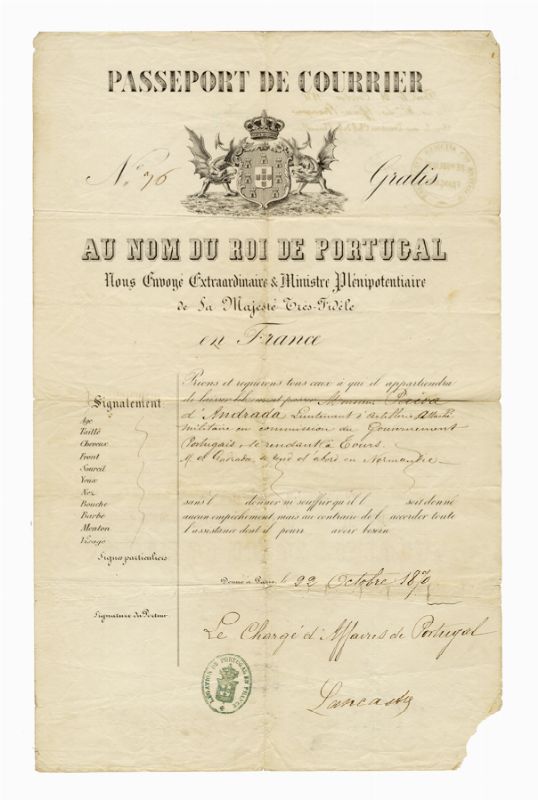 PASSEPORT DE COURRIER
N.º 76 Gratis
AU NOM DU ROI DE PORTUGAL
Nous Envoyé Extraordinaire & Ministre Plénipotentiaire
de Sa Majesté Très-Fidèle
en France
Prions et requérons tous ceux à qui il appartiendra
de laisser passer Monsieur Paiva
d'Andrada Lieutenant d'Artillerie, Attaché
Militaire en commission du Gouvernement
Portugais, se rendant à Tours.
M. d'Andrada, se rend d'abord en Normandie
sans l donner ni souffrir qu'il l soit donné
aucun empêchement mais au contraire de l accorder toute
l'assistance dont il pourr avoir besoin
Signalement
Age
Taille
Cheveux
Front
Sourcil
Yeux
Nez
Bouche
Barbe
Menton
Visage
Signes particuliers
Donné à Paris, le 22 Octobre 1870
Signature du Porteur
Le Chargé d'Affaires de Portugal
Lancastre
LEGATION DE PORTUGAL EN FRANCE